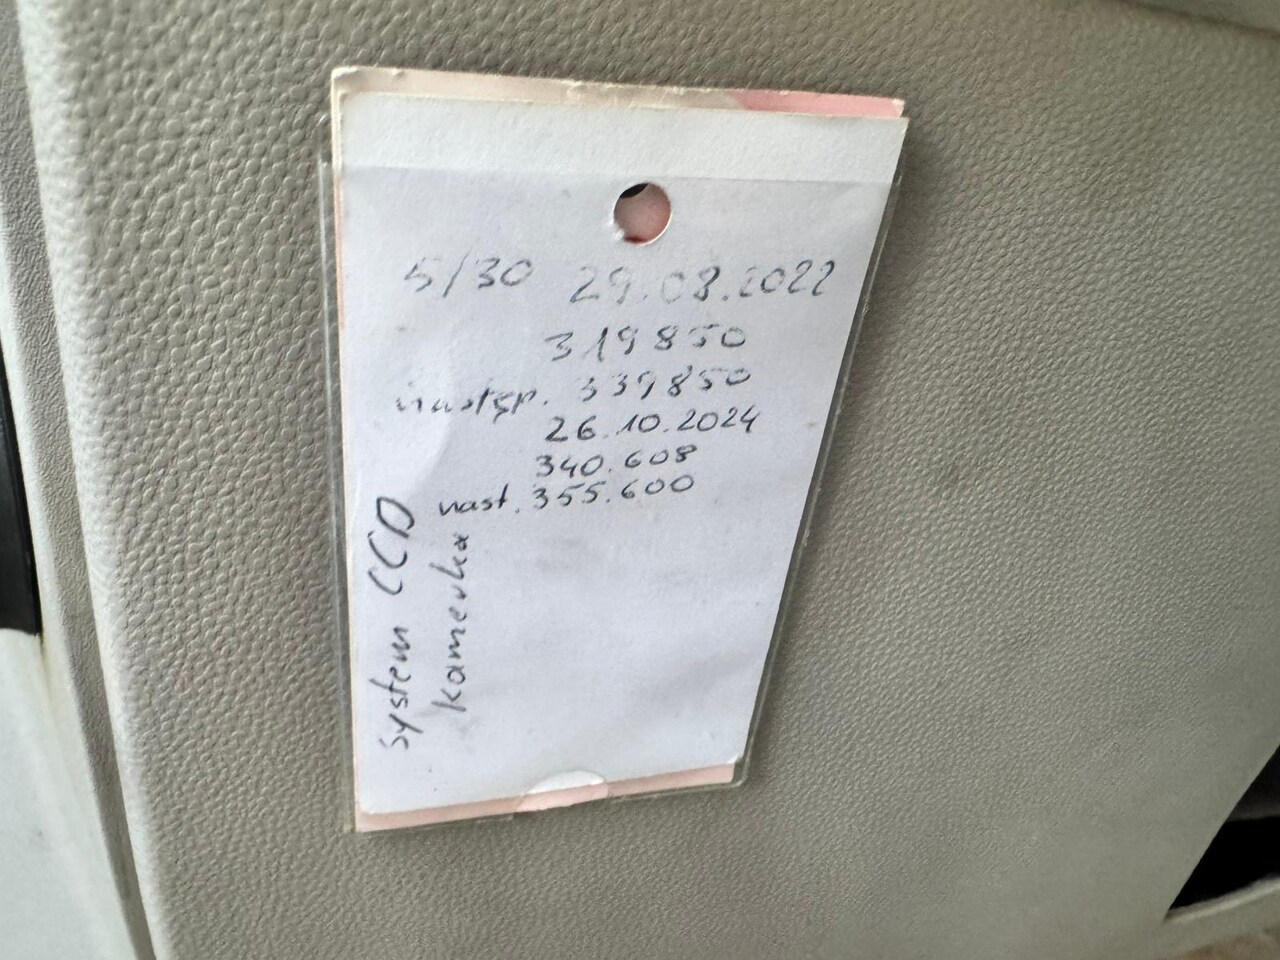 5/30 29.08.2022
319850
następ. 339850
26.10.2024
340.608
nast. 355.600
System CCD
kamerka